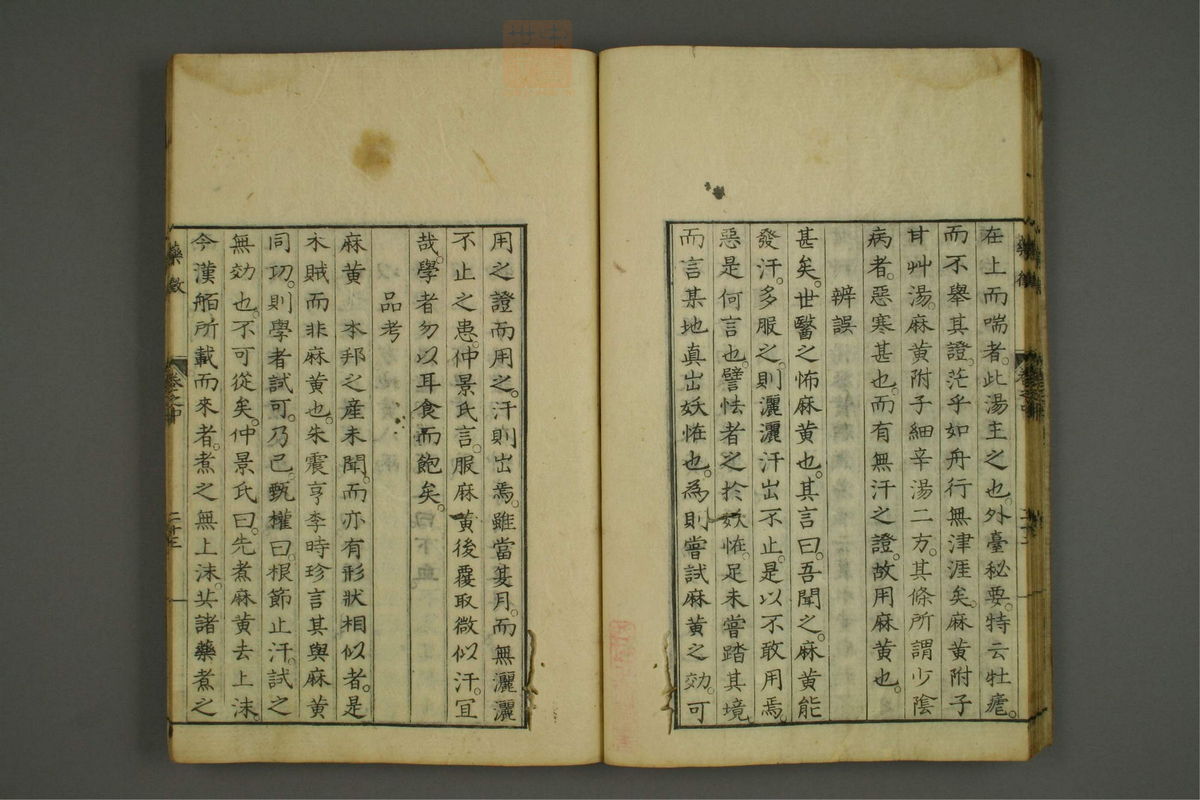 在上而喘者。此湯主之也。外臺秘要。特云牡瘧。
而不舉其證。茫乎如舟行無津涯矣。麻黃附子
甘艸湯。麻黃附子細辛湯二方。其條所謂少陰
病者。惡寒甚也。而有無汗之證。故用麻黃也。
辨誤
甚矣。世醫之怖麻黃也。其言曰。吾聞之。麻黃能
發汗。多服之。則灑灑汗出不止。是以不敢用焉。
惡是何言也。譬怯者之於妖怪。足未嘗踏其境
而言某地真出妖怪也。為則嘗試麻黃之効。可
用之證而用之。汗則出焉。雖當夏月。而無灑灑
不止之患。仲景氏言。服麻黃後覆取微似汗。宜
哉。學者勿以耳食而飽矣。
品考
麻黃 本邦之產未聞。而亦有形狀相似者。是
木賊而非麻黃也。朱震亨李時珍言其與麻黃
同功。則學者試可。乃已。甄權曰。根節止汗。試之
無効也。不可從矣。仲景氏曰。先煮麻黃去上沫。
今漢舶所載而來者。煮之無上沫。共諸藥煮之
藥徵
卷之中